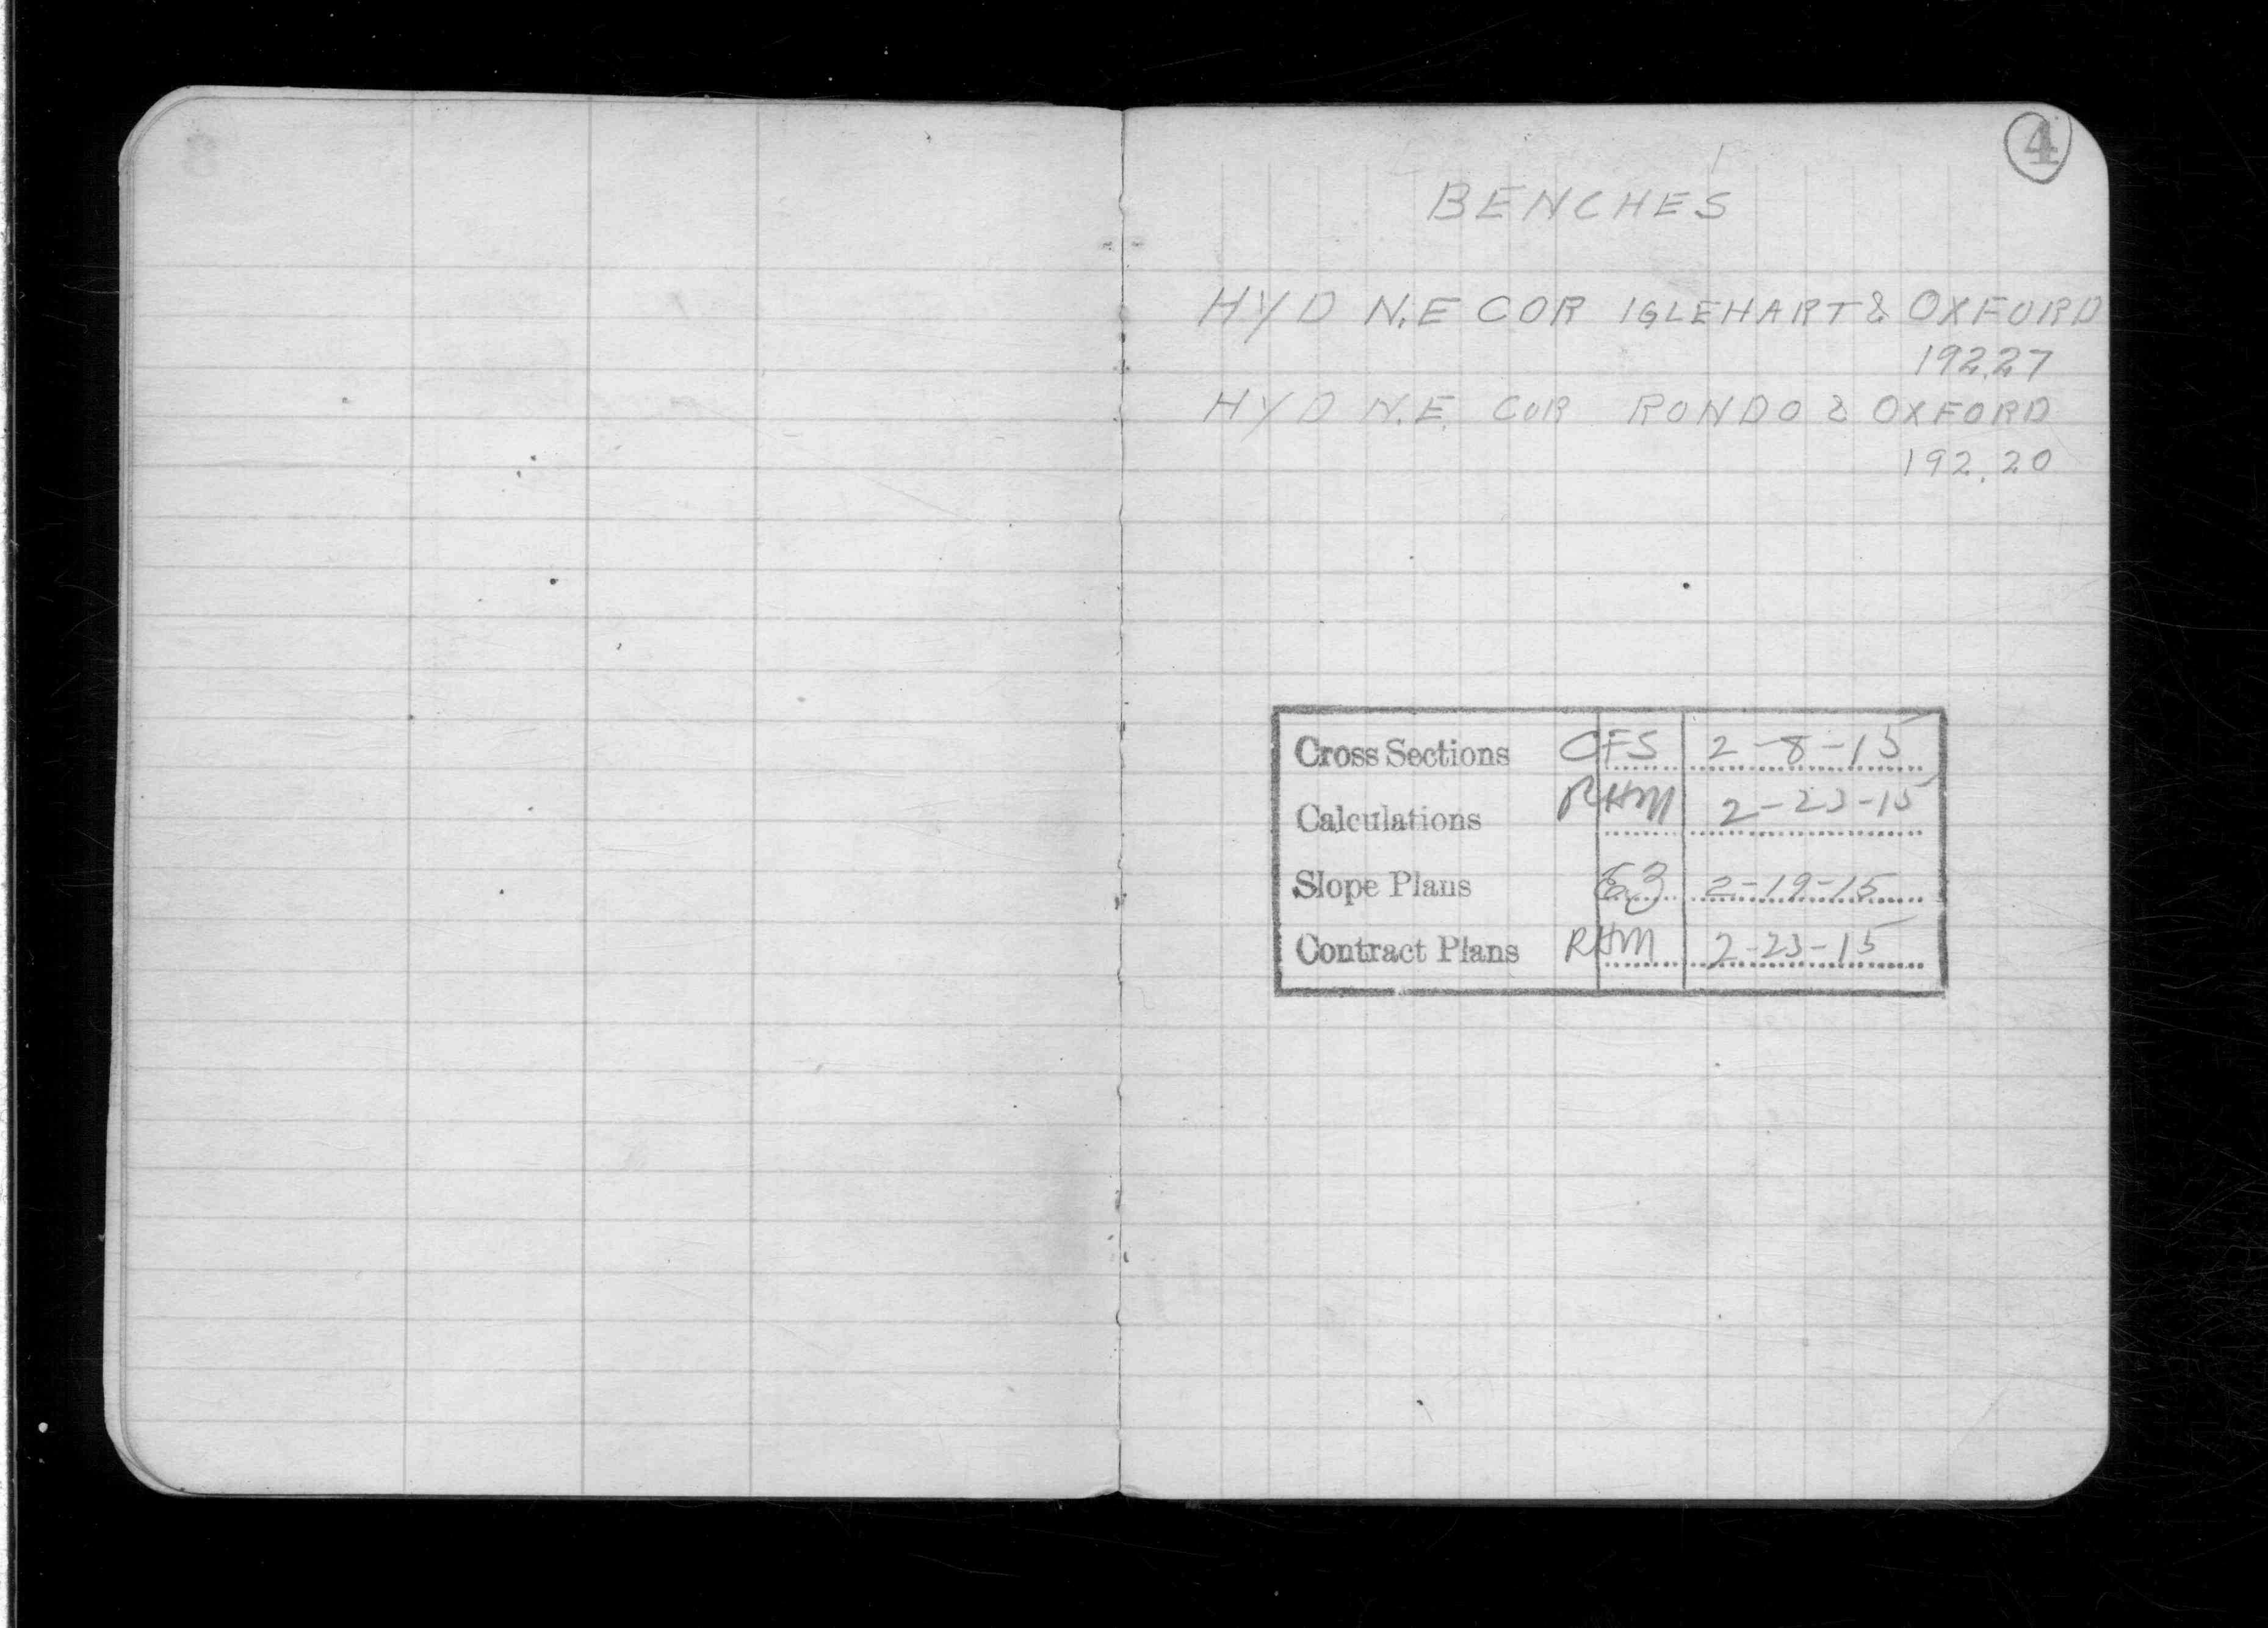 4
BENCHES
HYD N.E COR IGLEHART & OXFORD
192.27
HYD N.E. COR RONDO & OXFORD
192.20
Cross Sections CFS 2-8-15
Calculations RHM 2-23-15
Slope Plans 2-19-15
Contract Plans RHM 2-23-15